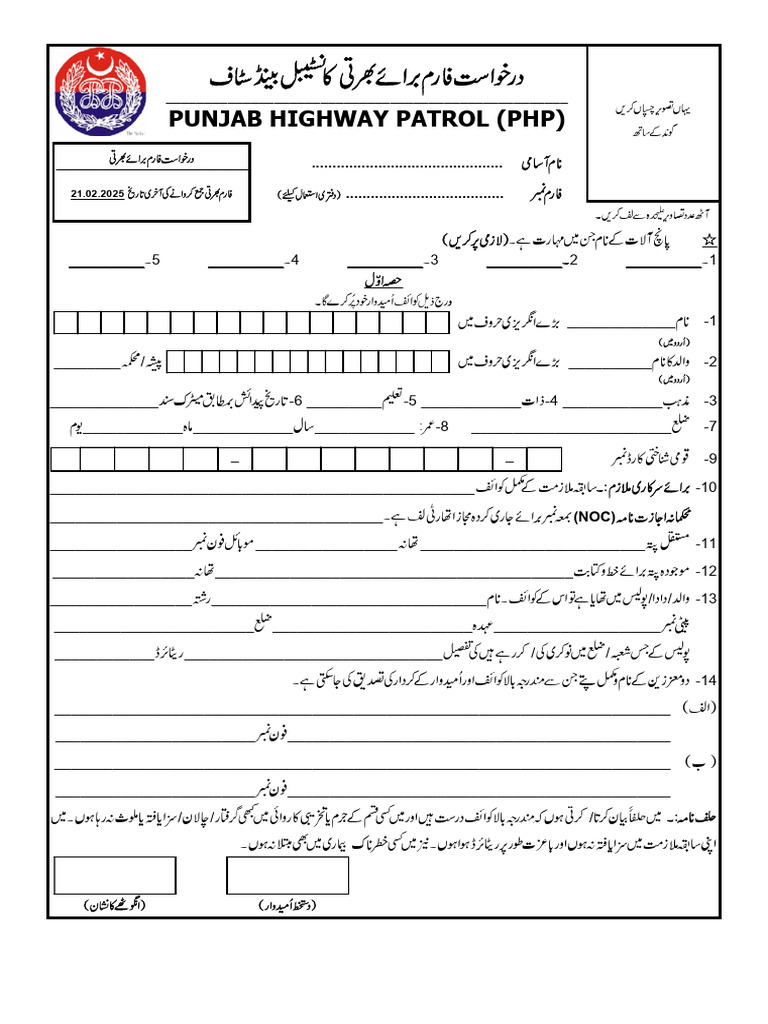 درخواست فارم برائے بھرتی کانسٹیبل بینڈ سٹاف
PUNJAB HIGHWAY PATROL (PHP)
یہاں تصویر چسپاں کریں
گوند کے ساتھ
درخواست فارم برائے بھرتی
فارم بھرتی جمع کروانے کی آخری تاریخ 21.02.2025
نام آسامی ..........................................
فارم نمبر ................................... (دفتری استعمال کیلئے)
آٹھ عدد تصاویر علیحدہ سے لف کریں۔
☆ پانچ آلات کے نام جن میں مہارت ہے۔ (لازمی پر کریں)
1- __________ 2- __________ 3- __________ 4- __________ 5- __________
حصہ اوّل
درج ذیل کوائف اُمیدوار خود پُر کرے گا۔
1- نام ______________ بڑے انگریزی حروف میں
(اُردو میں)
2- والد کا نام __________ بڑے انگریزی حروف میں پیشہ / محکمہ __________
(اُردو میں)
3- مذہب __________ 4- ذات __________ 5- تعلیم __________ 6- تاریخ پیدائش بمطابق میٹرک سند __________
7- ضلع __________ 8- عمر: __________ سال __________ ماہ __________ یوم
9- قومی شناختی کارڈ نمبر – –
10- برائے سرکاری ملازم:۔ سابقہ ملازمت کے مکمل کوائف __________
محکمانہ اجازت نامہ (NOC) بمعہ نمبر برائے جاری کردہ مجاز اتھارٹی لف ہے۔ __________
11- مستقل پتہ __________ تھانہ __________ موبائل فون نمبر __________
12- موجودہ پتہ برائے خط و کتابت __________ تھانہ __________
13- والد / دادا / پولیس میں تھا یا ہے تو اس کے کوائف۔ نام __________ رشتہ __________
پیٹی نمبر __________ عہدہ __________ ضلع __________
پولیس کے جس شعبہ / ضلع میں نوکری کی / کر رہے ہیں کی تفصیل __________ ریٹائرڈ __________
14- دو معززین کے نام و مکمل پتے جن سے مندرجہ بالا کوائف اور اُمیدوار کے کردار کی تصدیق کی جا سکتی ہے۔
(الف) __________
__________ فون نمبر __________
(ب) __________
__________ فون نمبر __________
حلف نامہ:۔ میں حلفاً بیان کرتا / کرتی ہوں کہ مندرجہ بالا کوائف درست ہیں اور میں کسی قسم کے جرم یا تخریبی کاروائی میں کبھی گرفتار / چالان / سزا یافتہ یا ملوث نہ رہا ہوں۔ میں
اپنی سابقہ ملازمت میں سزا یافتہ نہ ہوں اور باعزت طور پر ریٹائرڈ ہوا ہوں۔ نیز میں کسی خطرناک بیماری میں بھی مبتلا نہ ہوں۔
(دستخط اُمیدوار) (انگوٹھے کا نشان)